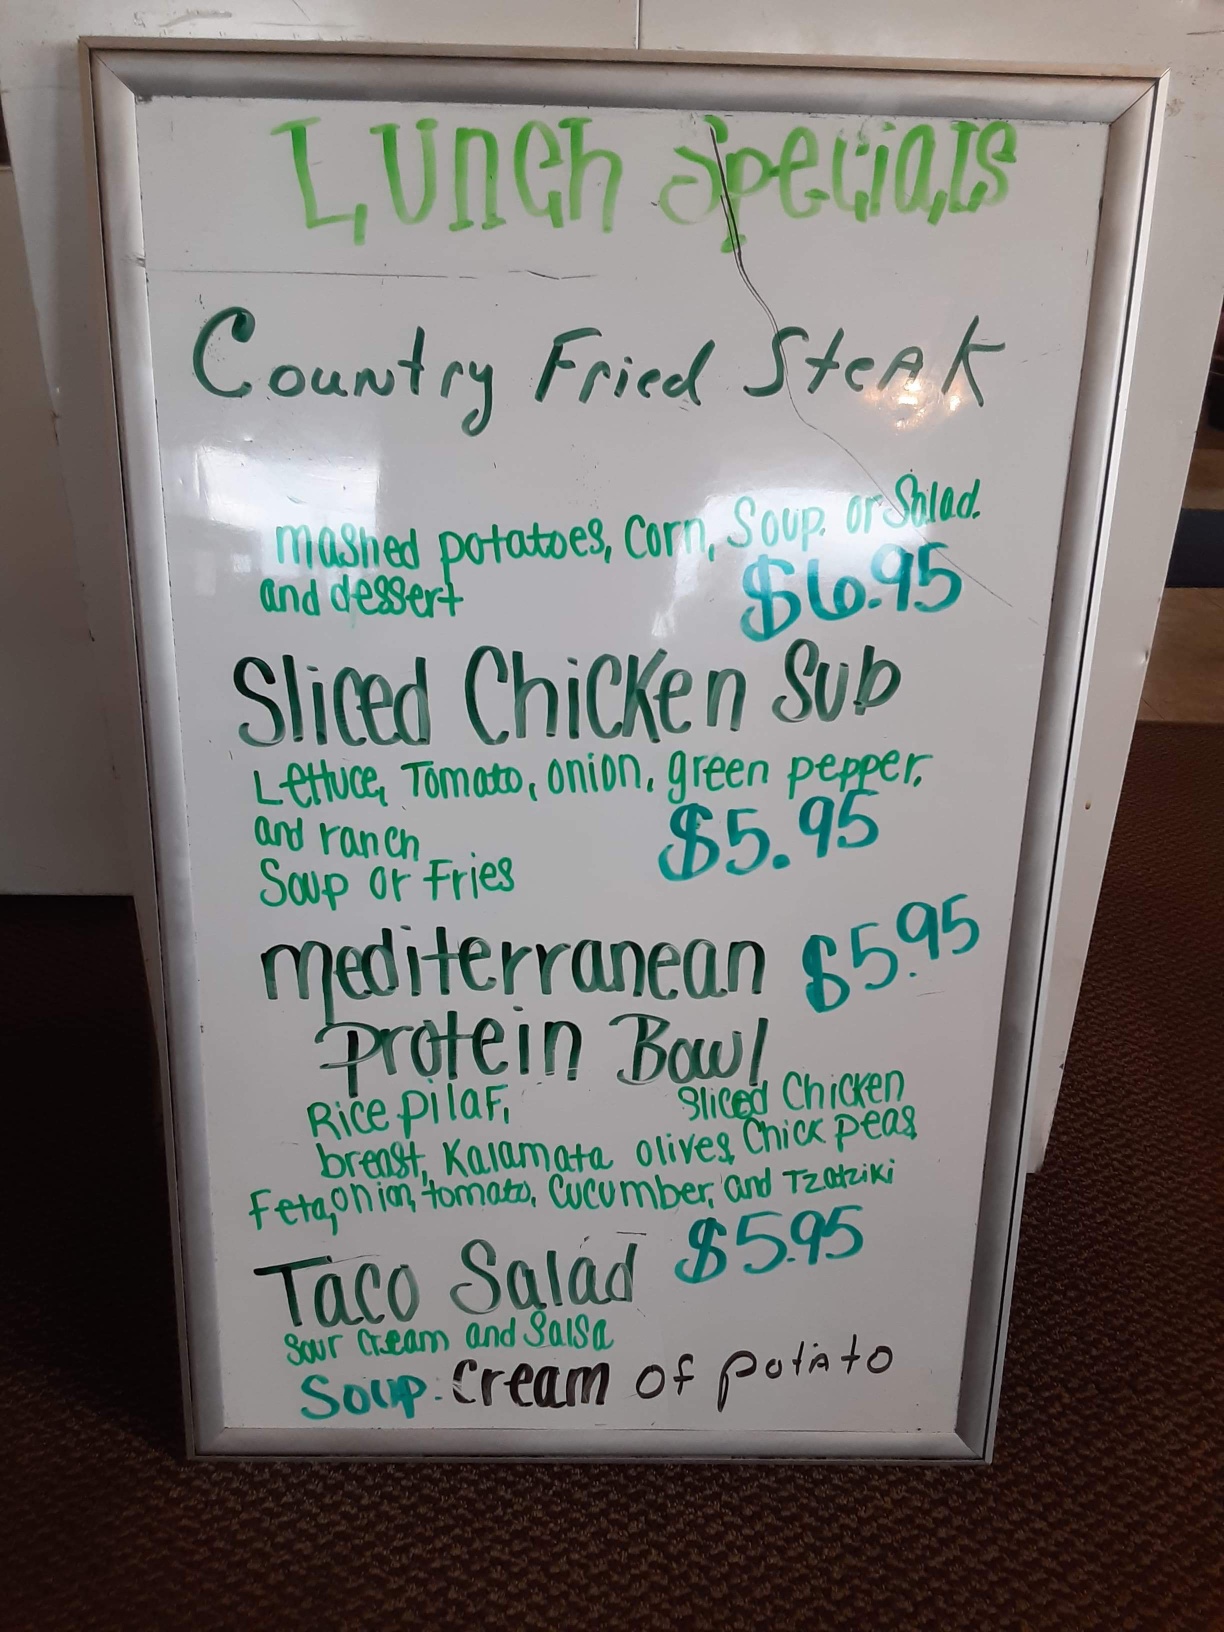 Lunch Specials
Country Fried Steak
mashed potatoes, Corn, Soup. or Salad.
and dessert $6.95
Sliced Chicken Sub
Lettuce, Tomato, onion, green pepper,
and ranch $5.95
Soup or Fries
mediterranean $5.95
Protein Bowl
Rice pilaf, Sliced Chicken
breast, Kalamata olives, Chick peas,
Feta, onion, tomato, Cucumber, and Tzatziki
Taco Salad $5.95
Sour Cream and Salsa
Soup. Cream of potato